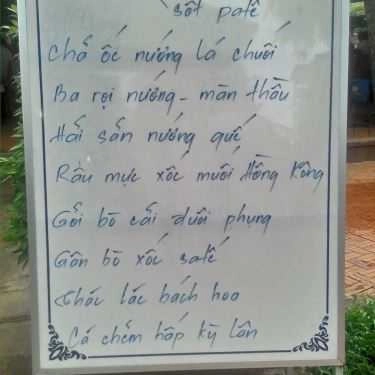 sốt patê
Chả ốc nướng lá chuối
Ba rọi nướng - màn thầu
Hải sản nướng quế
Râu mực xốc muối Hồng Kông
Gỏi bò cải dưới phụng
Gân bò xốc satế
Thác lác bách hoa
Cá chẽm hấp kỳ lân